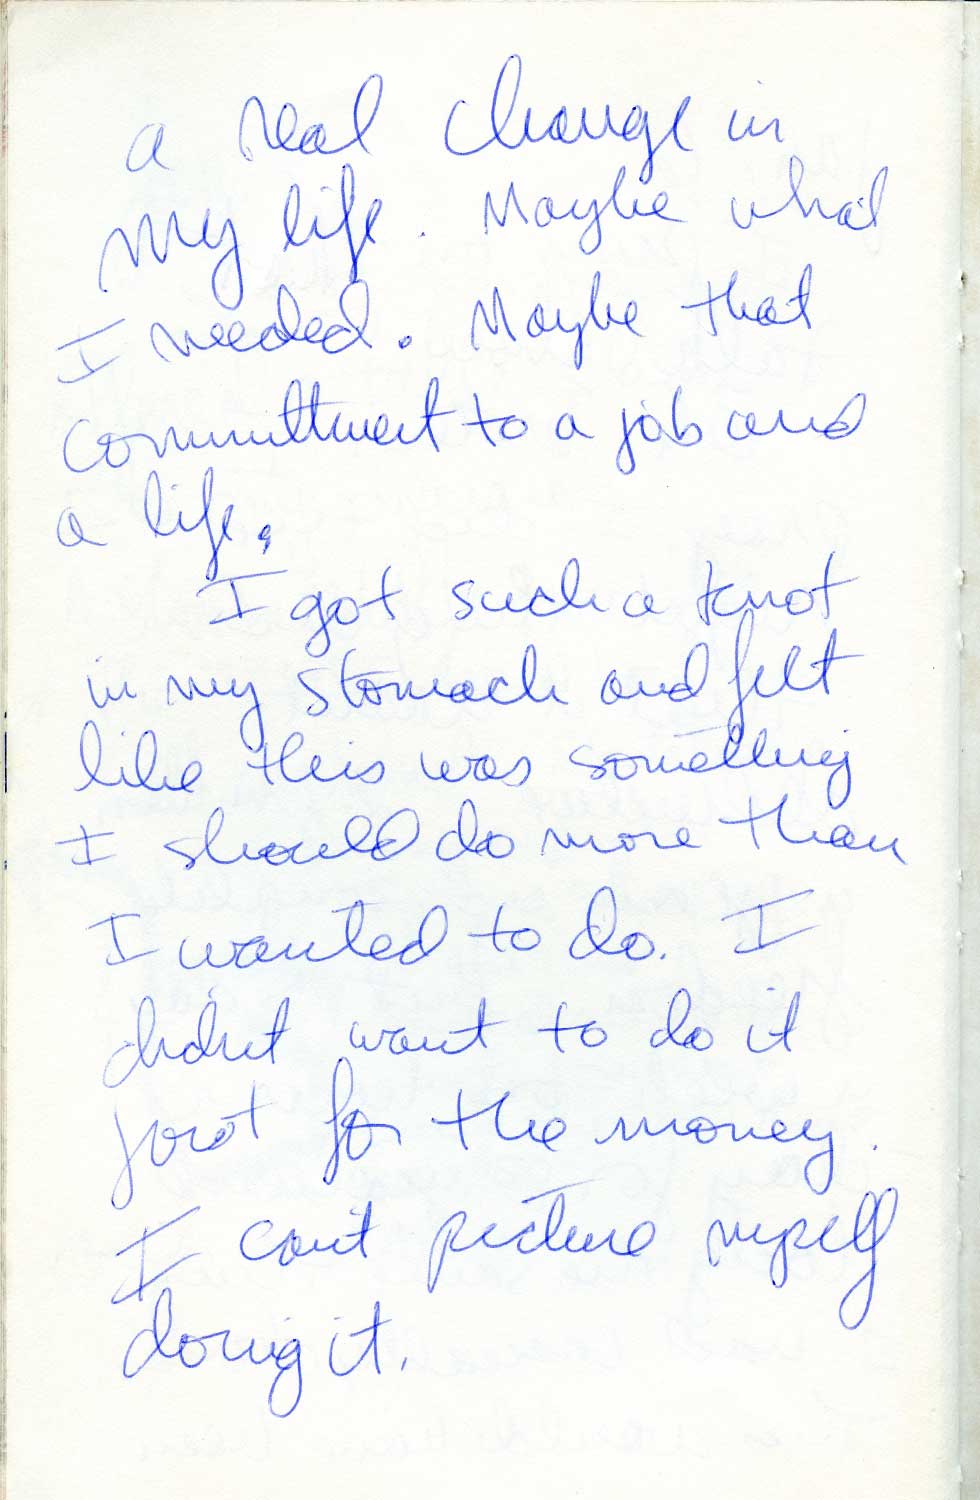 a real change in
my life. Maybe what
I needed. Maybe that
committment to a job and
a life.
I got such a knot
in my stomach and felt
like this was something
I should do more than
I wanted to do. I
didn't want to do it
just for the money.
I can't picture myself
doing it.